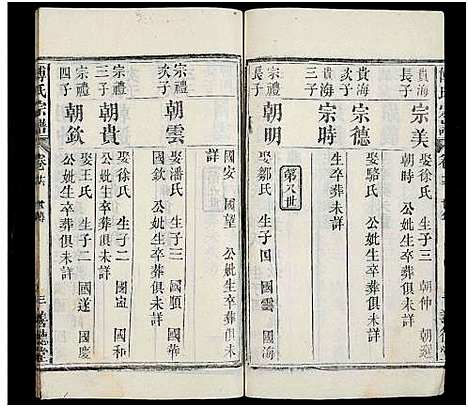 貴海
長子
宗美
娶徐氏 生子三 朝仲 朝選
朝時 公妣生卒葬俱未詳
貴海
次子
宗德
娶駱氏 公妣生卒葬俱未詳
貴海
三子
宗時
生卒葬未詳
第八世
宗禮
長子
朝明
娶鄒氏 生子四 國雲 國海
國安 國望 公妣生卒葬俱未
詳
宗禮
次子
朝雲
娶潘氏 生子三 國順 國華
國欽 公妣生卒葬俱未詳
宗禮
三子
朝貴
娶徐氏 生子二 國和
公妣生卒葬俱未詳
宗禮
四子
朝欽
娶王氏 生子二 國遂 國慶
公妣生卒葬俱未詳
傅氏宗譜 卷
三 善德堂